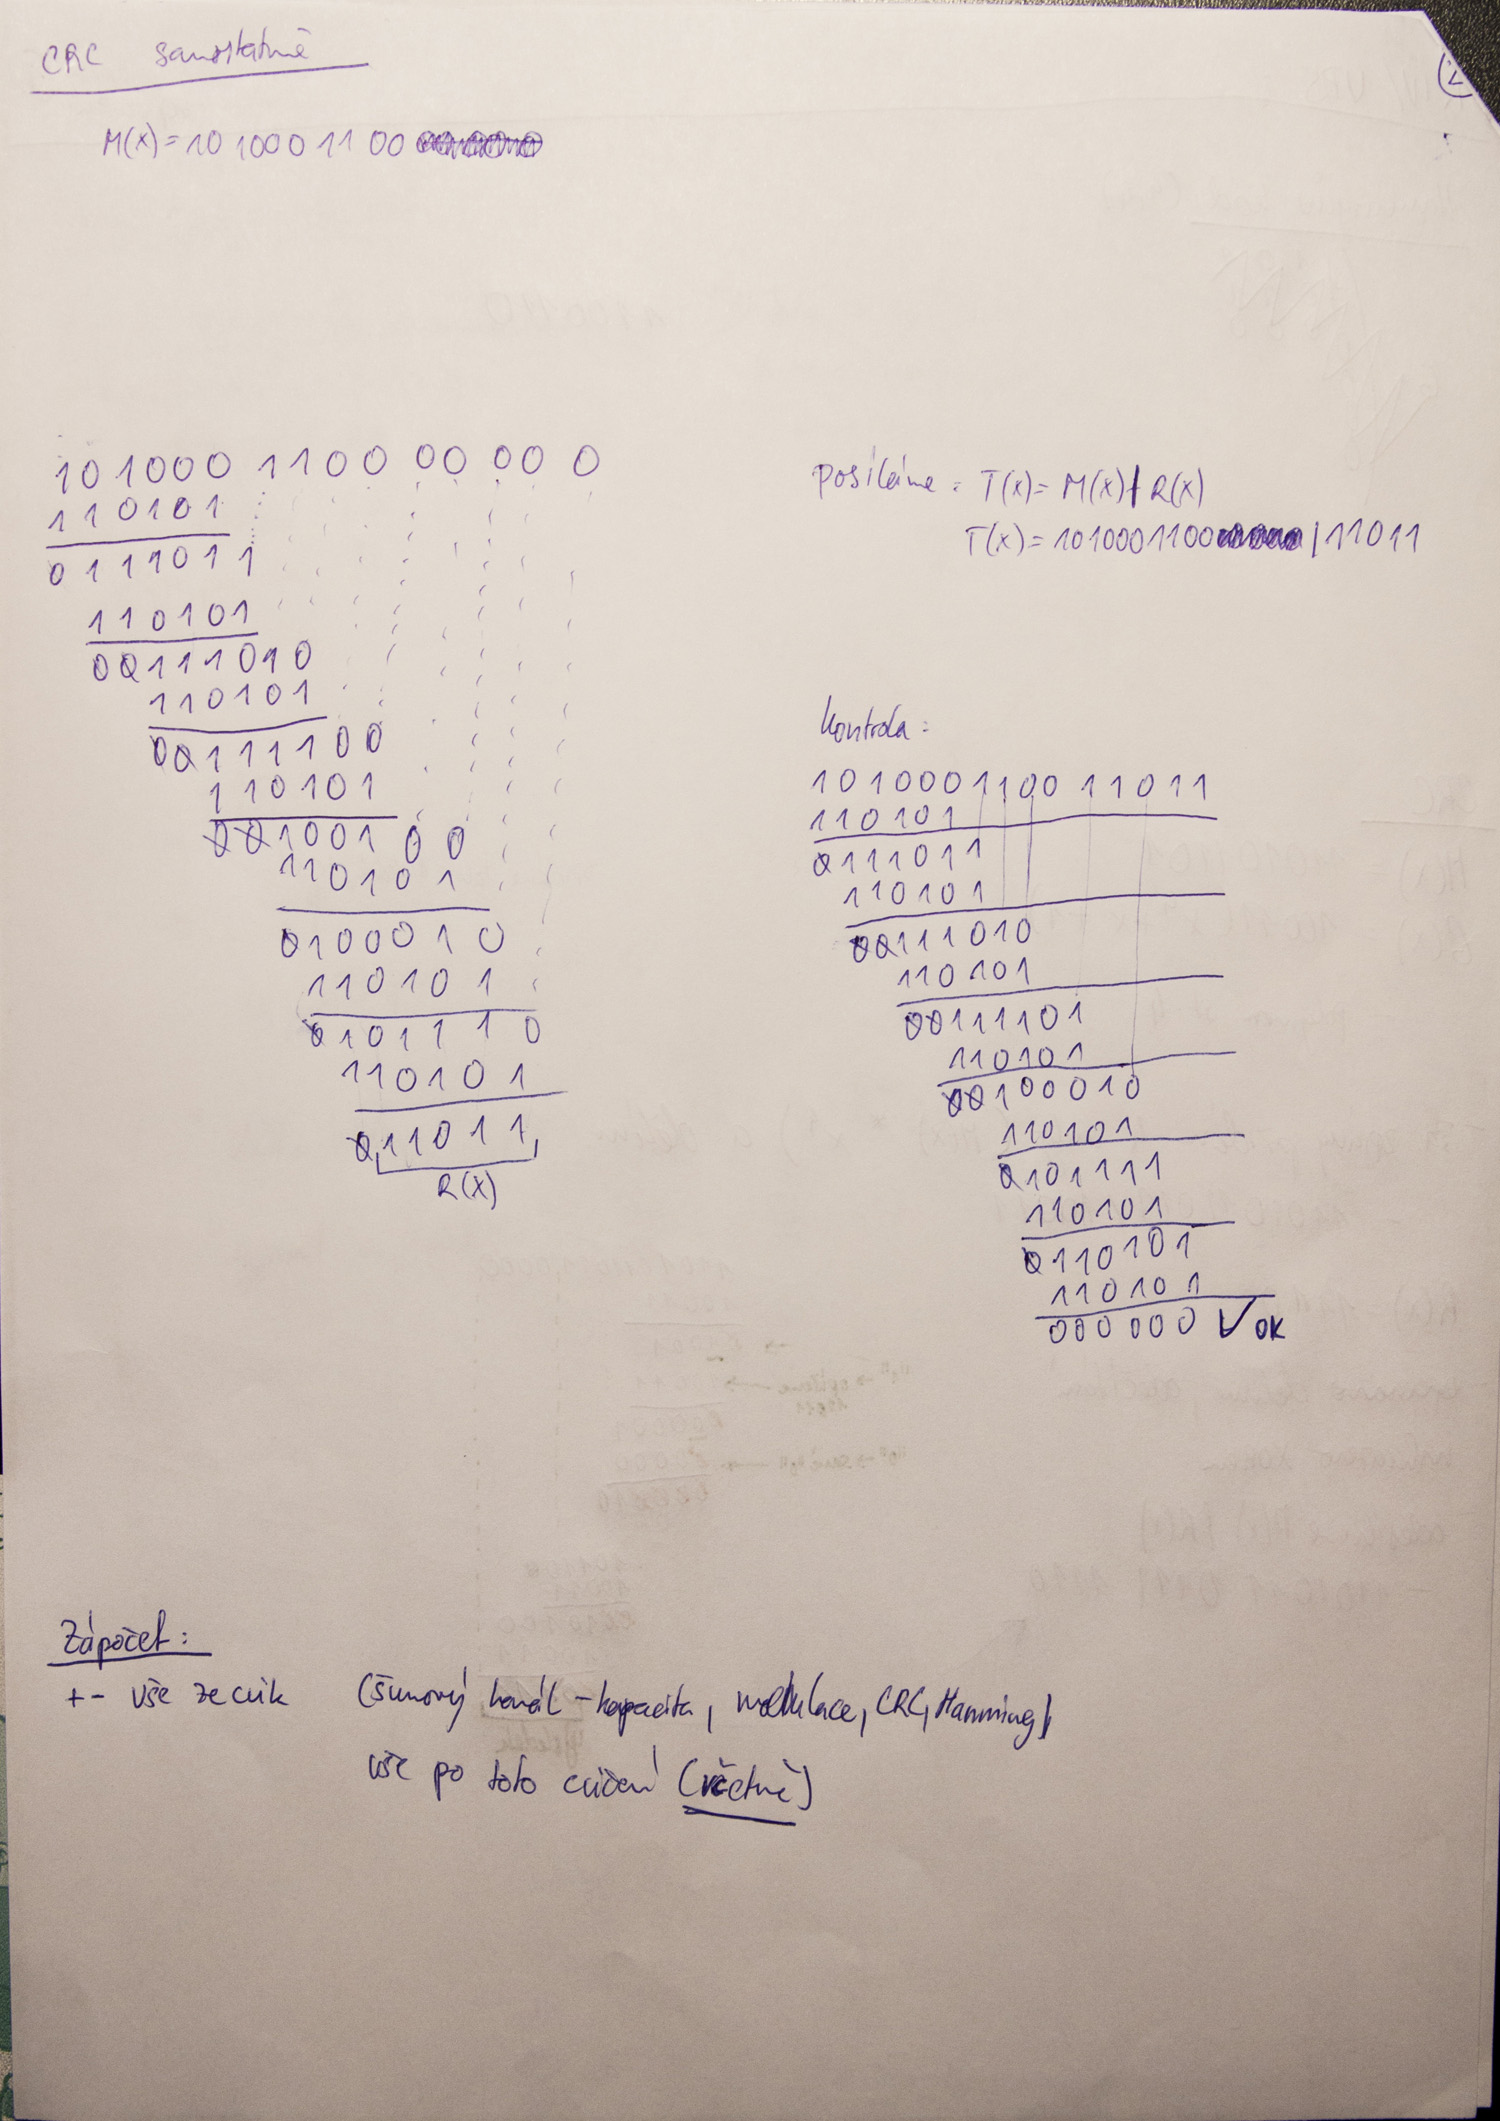 CRC samostatně
M(x)=10100011 00
101000 1100 00 00 0
110101
0111011
110101
00111010
110101
00111100
110101
001001 00
110101
0100010
110101
0101110
110101
011011
R(x)
posíláme: T(x)= M(x)|R(x)
T(x)=1010001100|11011
kontrola:
1010001100 11011
110101
0111011
110101
00111010
110101
00111101
110101
00100010
110101
0101111
110101
0110101
110101
000000 ✓ OK
Zápočet:
+- vše ze cvik (šumový kanál - kapacita, modulace, CRC, Hamming)
vše po toto cvičení (včetně)